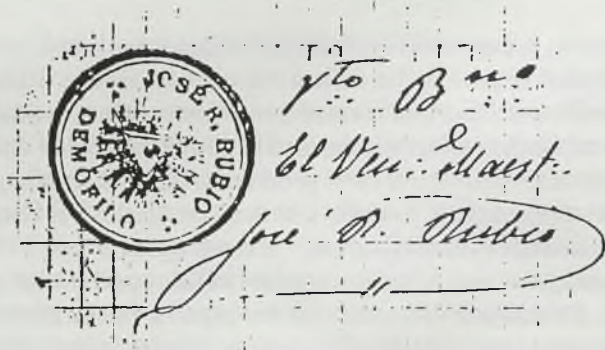 JOSÉ R. RUBIO
DEMOFILO
Vto Bno
El Ven∴ Maest∴
José R. Rubio